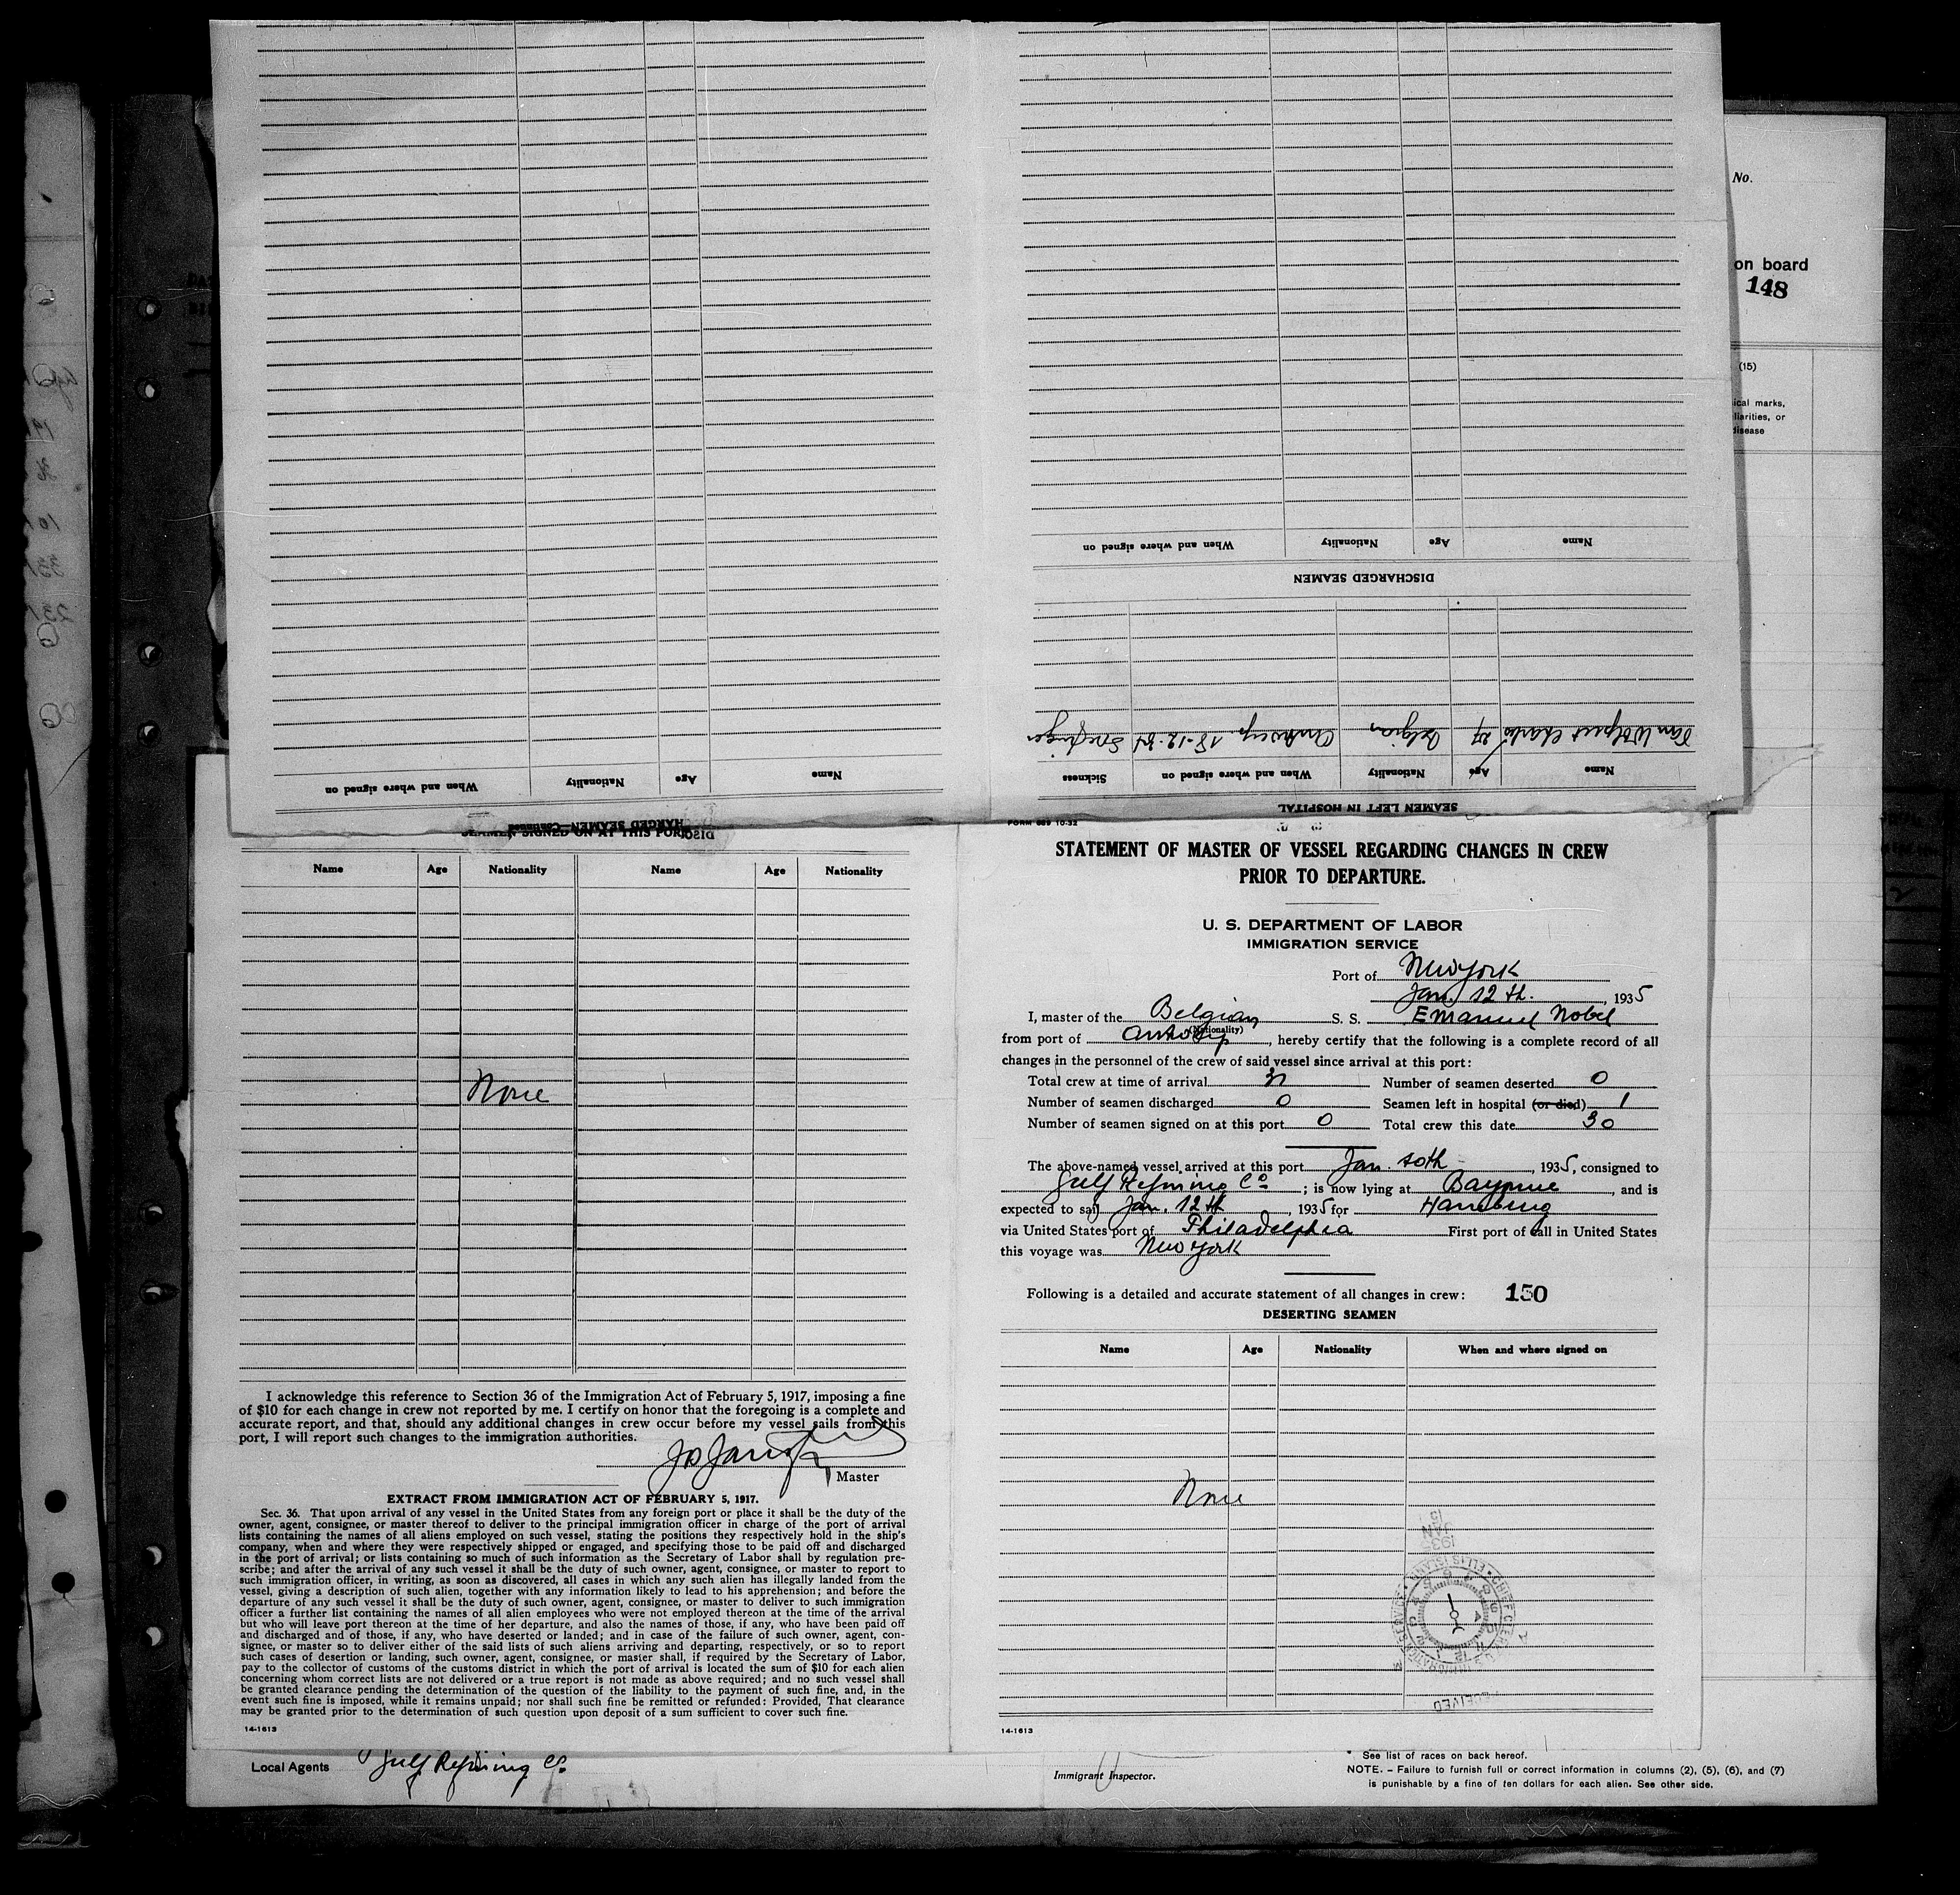 No.
on board
148
(15)
ical marks,
liarities, or
disease
When and where signed on
Nationality
Age
Name
DISCHARGED SEAMEN
Charles 27 Belgian 18-12-34
Sickness
When and where signed on
Nationality
Age
Name
SEAMEN LEFT IN HOSPITAL
When and where signed on
Nationality
Age
Name
DISCHARGED SEAMEN—Continued
SEAMEN SIGNED ON AT THIS PORT
Name Age Nationality Name Age Nationality
None
I acknowledge this reference to Section 36 of the Immigration Act of February 5, 1917, imposing a fine
of $10 for each change in crew not reported by me. I certify on honor that the foregoing is a complete and
accurate report, and that, should any additional changes in crew occur before my vessel sails from this
port, I will report such changes to the immigration authorities.
Master
EXTRACT FROM IMMIGRATION ACT OF FEBRUARY 5, 1917.
Sec. 36. That upon arrival of any vessel in the United States from any foreign port or place it shall be the duty of the
owner, agent, consignee, or master thereof to deliver to the principal immigration officer in charge of the port of arrival
lists containing the names of all aliens employed on such vessel, stating the positions they respectively hold in the ship's
company, when and where they were respectively shipped or engaged, and specifying those to be paid off and discharged
in the port of arrival; or lists containing so much of such information as the Secretary of Labor shall by regulation pre-
scribe; and after the arrival of any such vessel it shall be the duty of such owner, agent, consignee, or master to report to
such immigration officer, in writing, as soon as discovered, all cases in which any such alien has illegally landed from the
vessel, giving a description of such alien, together with any information likely to lead to his apprehension; and before the
departure of any such vessel it shall be the duty of such owner, agent, consignee, or master to deliver to such immigration
officer a further list containing the names of all alien employees who were not employed thereon at the time of the arrival
but who will leave port thereon at the time of her departure, and also the names of those, if any, who have been paid off
and discharged and of those, if any, who have deserted or landed; and in case of the failure of such owner, agent, con-
signee, or master so to deliver either of the said lists of such aliens arriving and departing, respectively, or so to report
such cases of desertion or landing, such owner, agent, consignee, or master shall, if required by the Secretary of Labor,
pay to the collector of customs of the customs district in which the port of arrival is located the sum of $10 for each alien
concerning whom correct lists are not delivered or a true report is not made as above required; and no such vessel shall
be granted clearance pending the determination of the question of the liability to the payment of such fine, and, in the
event such fine is imposed, while it remains unpaid; nor shall such fine be remitted or refunded: Provided, That clearance
may be granted prior to the determination of such question upon deposit of a sum sufficient to cover such fine.
14-1613
Local Agents Gulf Refining Co.
FORM 689 10-32
STATEMENT OF MASTER OF VESSEL REGARDING CHANGES IN CREW
PRIOR TO DEPARTURE.
U. S. DEPARTMENT OF LABOR
IMMIGRATION SERVICE
Port of New York
Jan. 12 th. , 1935
I, master of the Belgian S. S. Emanuel Nobel
(Nationality)
from port of Antwerp, hereby certify that the following is a complete record of all
changes in the personnel of the crew of said vessel since arrival at this port:
Total crew at time of arrival 31 Number of seamen deserted 0
Number of seamen discharged 0 Seamen left in hospital (or died) 1
Number of seamen signed on at this port 0 Total crew this date 30
The above-named vessel arrived at this port Jan. 10th , 1935, consigned to
Gulf Refining Co ; is now lying at Bayonne , and is
expected to sail Jan. 12th , 1935 for Hamburg
via United States port of Philadelphia First port of call in United States
this voyage was New York
Following is a detailed and accurate statement of all changes in crew: 150
DESERTING SEAMEN
Name Age Nationality When and where signed on
None
1935
JAN
RECEIVED
14-1613
Immigrant Inspector.
See list of races on back hereof.
NOTE. - Failure to furnish full or correct information in columns (2), (5), (6), and (7)
is punishable by a fine of ten dollars for each alien. See other side.